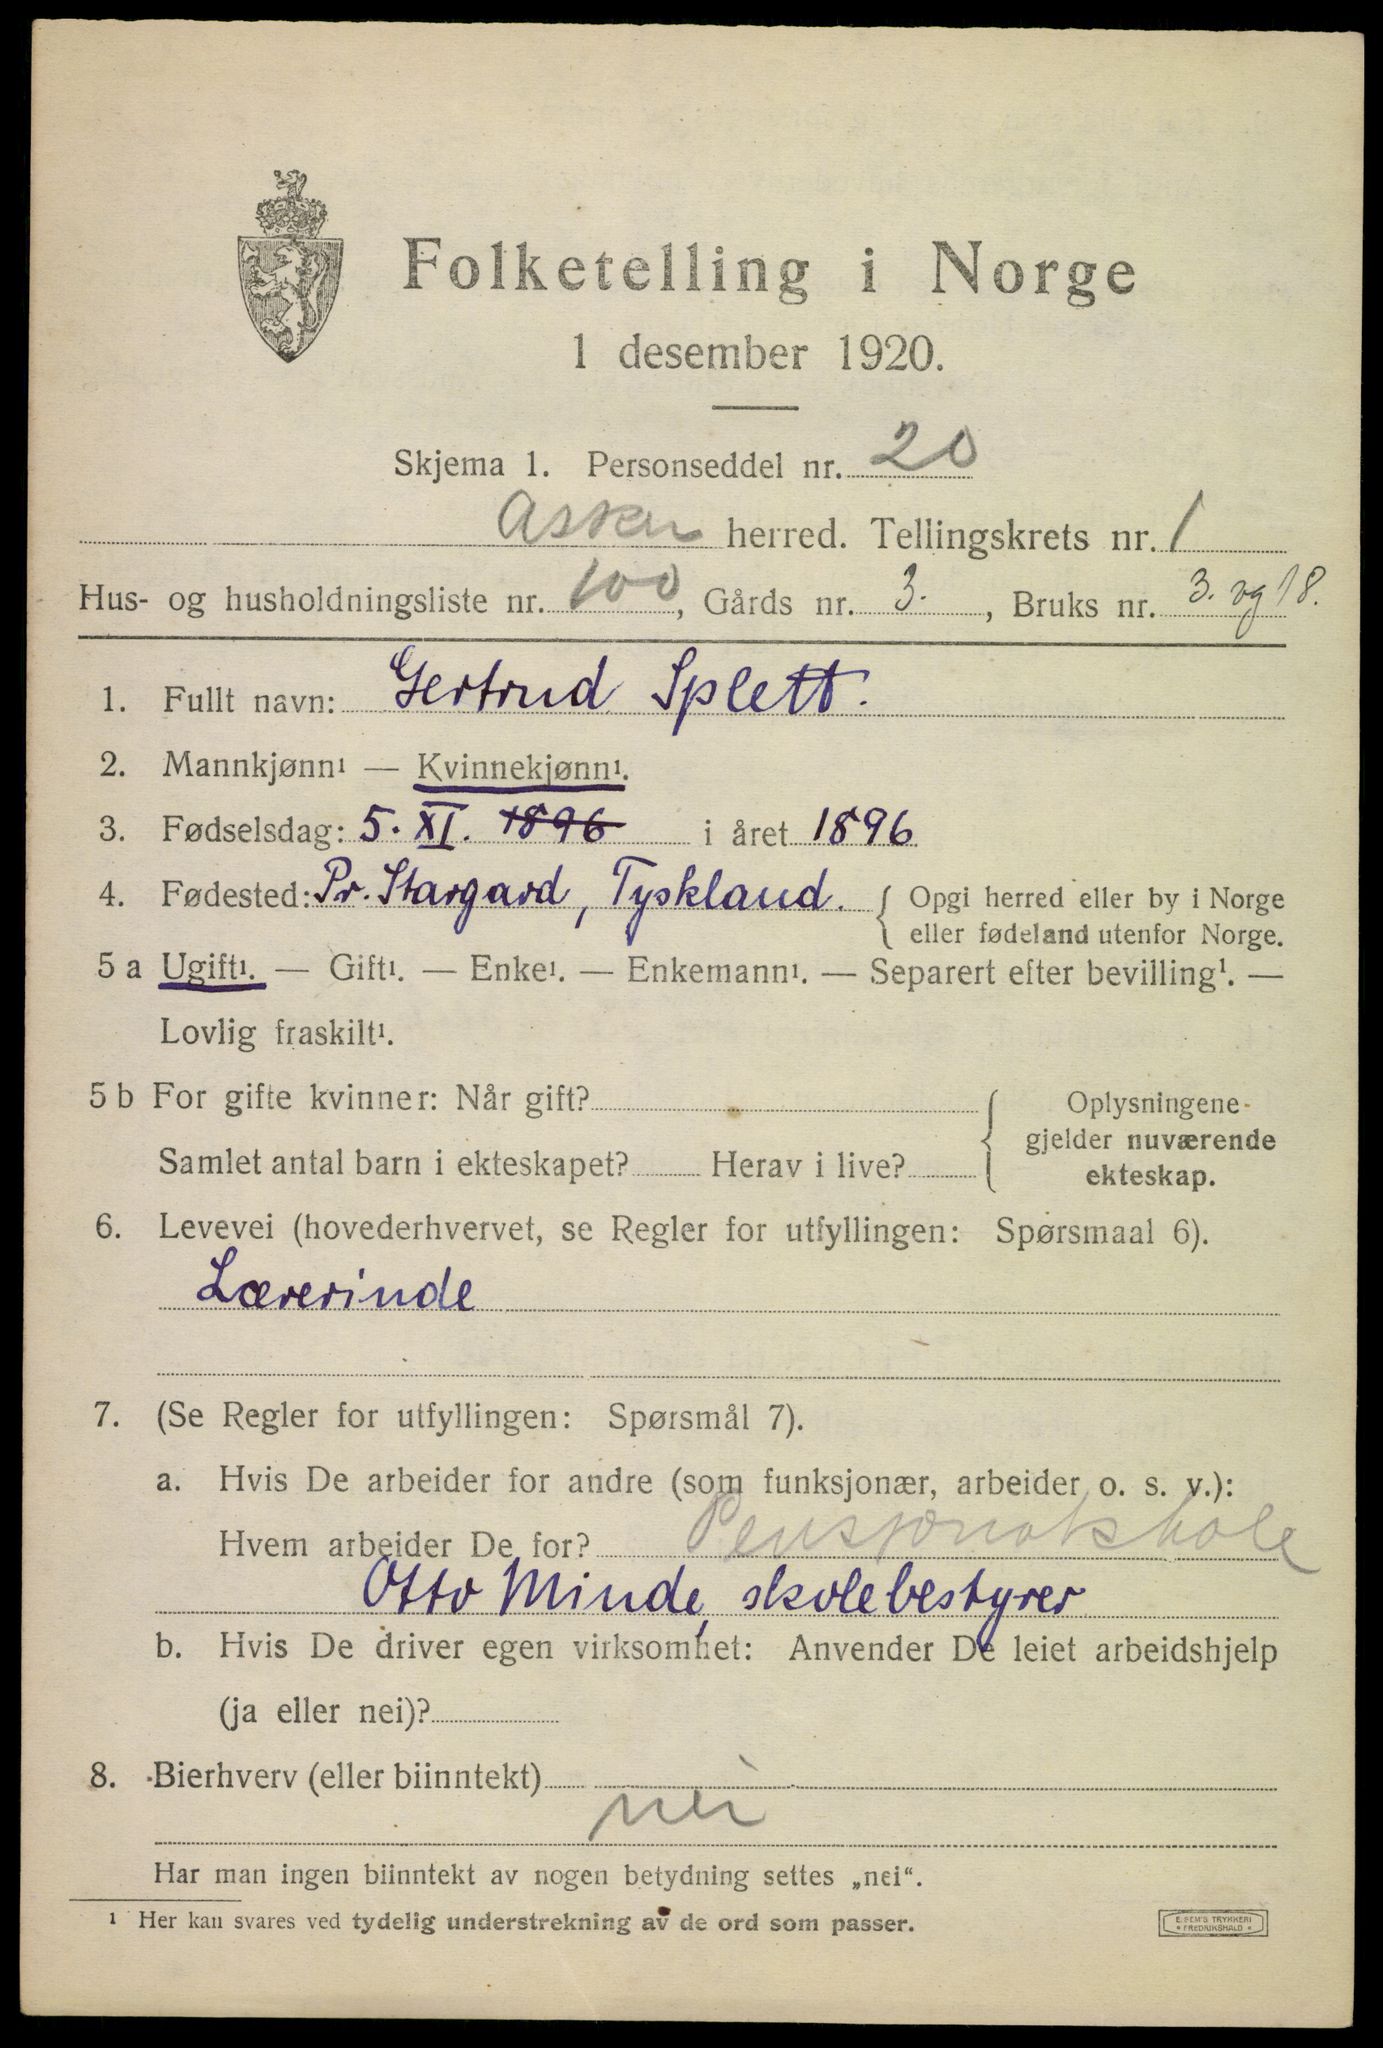 Folketelling i Norge
1 desember 1920.
Skjema 1. Personseddel nr. 20
Asker herred. Tellingskrets nr. 1
Hus- og husholdningsliste nr. 100, Gårds nr. 3., Bruks nr. 3. og 18.
1. Fullt navn: Gertrud Splett.
2. Mannkjønn¹ — Kvinnekjønn¹.
3. Fødselsdag: 5. XI. 1896 i året 1896
4. Fødested: Pr. Stargard, Tyskland. { Opgi herred eller by i Norge
eller fødeland utenfor Norge.
5 a Ugift¹. — Gift¹. — Enke¹. — Enkemann¹. — Separert efter bevilling¹. —
Lovlig fraskilt¹.
5 b For gifte kvinner: Når gift?
Samlet antal barn i ekteskapet? Herav i live?
Oplysningene
gjelder nuværende
ekteskap.
6. Levevei (hovederhvervet, se Regler for utfyllingen: Spørsmaal 6).
Lærerinde
7. (Se Regler for utfyllingen: Spørsmål 7).
a. Hvis De arbeider for andre (som funksjonær, arbeider o. s. v.):
Hvem arbeider De for? Pensjonatskole
Otto Minde, skolebestyrer
b. Hvis De driver egen virksomhet: Anvender De leiet arbeidshjelp
(ja eller nei)?
8. Bierhverv (eller biinntekt)
nei
Har man ingen biinntekt av nogen betydning settes „nei“.
¹ Her kan svares ved tydelig understrekning av de ord som passer.
E. SEM'S TRYKKERI
FREDRIKSHALD